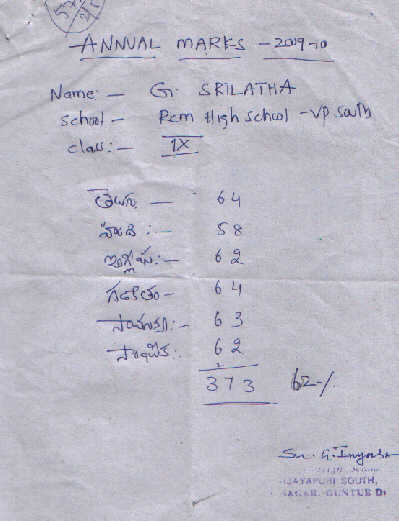 ANNUAL MARKS - 2009-10
Name: - G. SRILATHA
School - Pcm High school - VP South
class: - IX
తెలుగు - 64
హిందీ : - 58
ఇంగ్లీషు: - 62
గణితం - 64
సామాన్య: - 63
సాంఘీక: 62
373 62-/.
Sr. G.
VIJAYAPURI SOUTH,
SAGAR. GUNTUR Dt